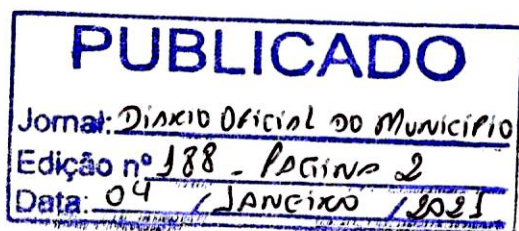 PUBLICADO
Jornal: DIARIO OFICIAL DO MUNICIPIO
Edição nº 188 - PAGINA 2
Data: 04 / JANEIRO / 2021